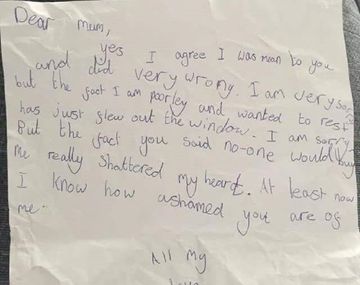 Dear mum,
yes I agree I was mean to you
and did very wrong. I am very sorry
but the fact I am poorley and wanted to rest
has just flew out the window. I am sorry
But the fact you said no-one would buy
me really shattered my heart. At least now
I know how ashamed you are of
me.
All my